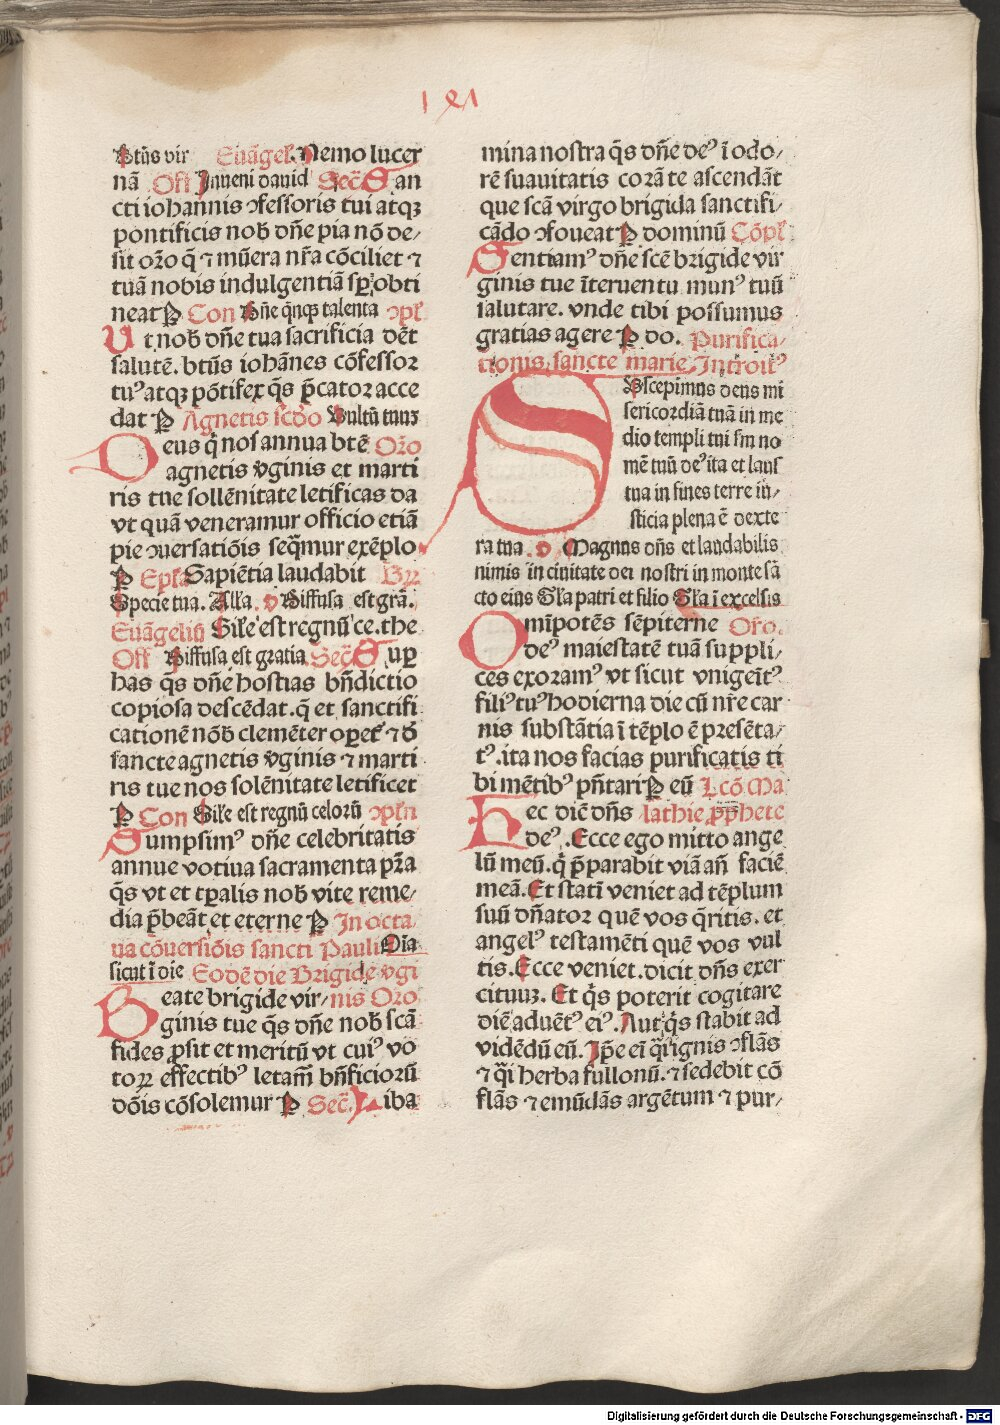 Btūs vir Euāgel. Nemo lucer
nā Off Inueni dauid Sec̄ San
cti iohannis ↄfessoris tui atqꝫ
pontificis nob̄ dn̄e pia nō de⸗
sit or̄o q̄ ⁊ mūera nr̄a cōciliet ⁊
tuā nobis indulgentiā sꝑ obti
neat P Con Dn̄e q̄nqꝫ talenta ↄpl̄
Ut nob̄ dn̄e tua sacrificia dēt
salutē. btūs iohānes cōfessor
tuꝰ atqꝫ pōtifex q̄s p̄cator acce
dat P Agnetis sc̄do Vultū tuuꝫ
Deus q̄ nos annua btē Or̄o
agnetis v̄ginis et marti
ris tue sollēnitate letificas da
vt quā veneramur officio etiā
pie ↄuersatiōis seq̄mur exēplo
P Epl̄a Sapiētia laudabit Grꝝ
Specie tua. All̄a. v Diffusa est grā.
Euāgeliū Sil̄e est regnū ce. the
Off Diffusa est gratia Sec̄ Suꝑ
has q̄s dn̄e hostias bn̄dictio
copiosa descēdat. q̄ et sanctifi
cationē nōb clemēter oꝑet᷑ ⁊ d̄
sancte agnetis v̄ginis ⁊ marti
ris tue nos solēnitate letificet
P Con Sil̄e est regnū celorū ↄpl̄n
Sumpsimꝰ dn̄e celebritatis
annue votiua sacramenta pr̄a
q̄s vt et tꝑalis nob̄ vite reme⸗
dia p̄beāt et eterne P In octa
ua cōuersiōis sancti Pauli Oīa
sicut ī die Eodē die Brigide v̄gi
Beate brigide vir⸗ nis Oro
ginis tue q̄s dn̄e nob̄ scā
fides ꝓsit et meritū vt cuiꝰ vo
torꝝ effectibꝰ letam̄ bn̄ficiorū
dōis cōsolemur P Sec̄. Liba
mina nostra q̄s dn̄e deꝰ ī odo⸗
rē suauitatis corā te ascendāt
que scā virgo brigida sanctifi⸗
cādo ↄfoueat P dominū Cōpl̄
Sentiamꝰ dn̄e scē brigide vir
ginis tue īteruentu munꝰ tuū
salutare. vnde tibi possumus
gratias agere P do. Purifica⸗
tionis sancte marie. Introitꝰ
Suscepimus deus mi
sericordiā tuā in me
dio templi tui sm no
mē tuū deꝰ ita et laus
tua in fines terre iu⸗
sticia plena ē dexte
ra tua. v Magnus dn̄s et laudabilis
nimis in ciuitate dei nostri in monte sā
cto eius Gl̄a patri et filio Gl̄a ī excelsis
Omīpotēs sēpiterne Or̄o.
deꝰ maiestatē tuā suppli⸗
ces exoramꝰ vt sicut vnigeītꝰ
filiꝰ tuꝰ hodierna die cū nr̄e car
nis substātia ī tēplo ē presēta⸗
tꝰ. ita nos facias purificatis ti
bi mētibꝰ pn̄tari P eū Lcō Ma
Hec diē dn̄s lathie ꝓphete
deꝰ. Ecce ego mitto ange
lū meū. q̄ p̄parabit viā an̄ faciē
meā. Et statī veniet ad tēplum
suū dn̄ator quē vos q̄ritis. et
angelꝰ testamēti quē vos vul
tis. Ecce veniet. dicit dn̄s exer
cituuꝫ. Et q̄s poterit cogitare
diē aduētꝰ eiꝰ. Aut q̄s stabit ad
vidēdū eū. Ip̄e eī q̄i ignis ↄflās
⁊ q̄i herba fullonū. ⁊ sedebit cō
flās ⁊ emūdās argētum ⁊ pur⸗
Digitalisierung gefördert durch die Deutsche Forschungsgemeinschaft - DFG